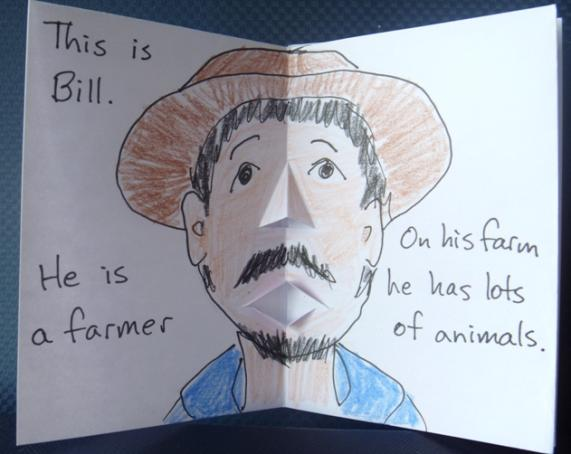 This is
Bill.
He is
a farmer
On his farm
he has lots
of animals.